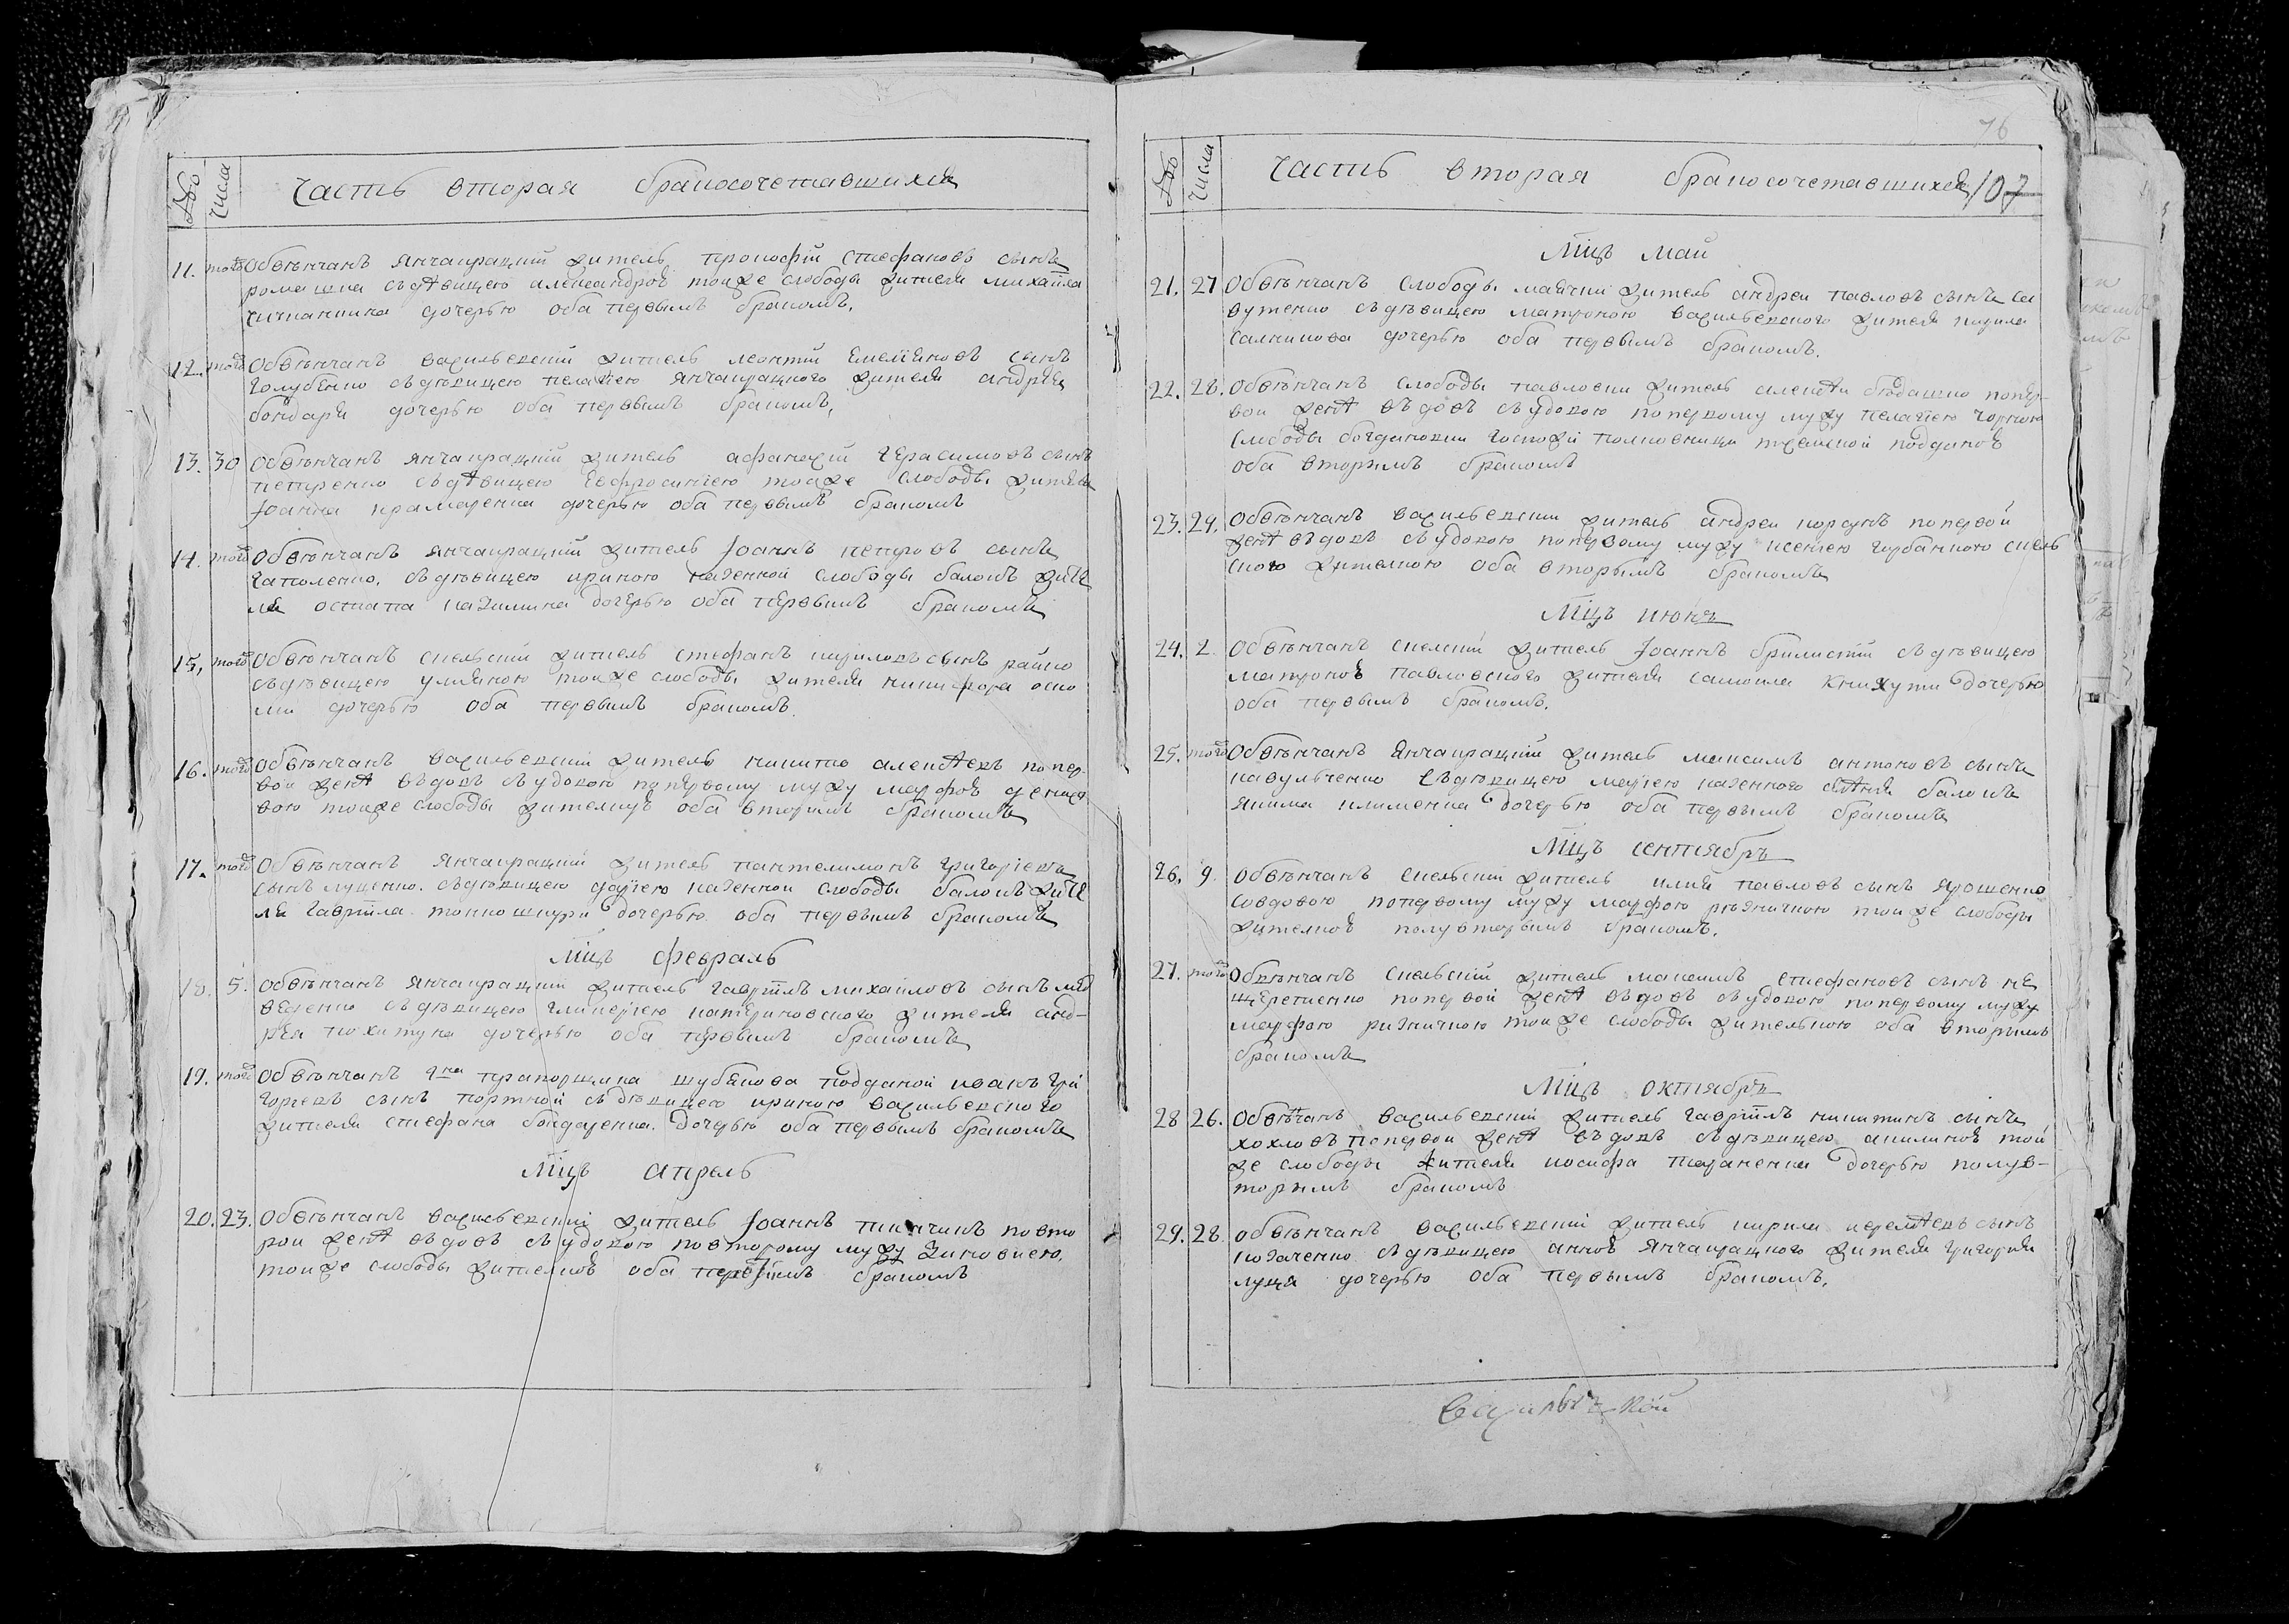 № Числа Часть вторая бракосочетавшихся
11. того Обвѣнчанъ янчакрацкій житель прокофій стефановъ сынъ
ромашка съ дѣвицею александрою тоиже слободы жителя михаила
дочерью оба первымъ бракомъ.
12. того Обвѣнчанъ васильевскій житель леонтій емельяновъ сынъ
голубенко съ дѣвицею пелагіею янчакрацкого жителя андрѣя
бондаря дочерью оба первымъ бракомъ.
13. 30 Обвѣнчанъ янчакрацкій житель афанасій герасимовъ сынъ
петренко съ дѣвицею евфросиніею тоиже слободы жителя
Іоанна крамаренка дочерью оба первымъ бракомъ
14. того Обвѣнчанъ янчакрацкій житель Іоаннъ петровъ сынъ
гаполенко. съ дѣвицею ириною казенной слободы балокъ жите
ля остапа дочерью оба первымъ бракомъ
15. того Обвѣнчанъ скельскій житель стефанъ кириловъ сынъ райко
съ дѣвицею улияною тоиже слободы жителя никифора оско
ми дочерью оба первымъ бракомъ.
16. того Обвѣнчанъ васильевскій житель никита алексѣевъ попер-
вои женѣ въдовъ съ удовою попервому мужу марфою
вою тоиже слободы жителкую оба вторимъ бракомъ
17. того Обвѣнчанъ янчакрацкій житель пантелимонъ григоріевъ
сынъ луценко. съ дѣвицею даріею казенной слободы балокъ жите
ля гавріила тонкошкури дочерью. оба первымъ бракомъ
Мцъ февраль
18. 5. Обвѣнчанъ янчакрацкій житель гавріилъ михайловъ сынъ мед
веденко съ дѣвицею гликеріею катериновского жителя анд-
рея похитуна дочерью оба первымъ бракомъ
19. того Обвѣнчанъ гна прапорщика шубякова подданой иванъ гри
горіевъ сынъ портной съ дѣвицею ириною васильевского
жителя стефана бондаренка. дочерью оба первымъ бракомъ
Мцъ апрель
20. 23. Обвѣнчанъ васильевскій житель Іоаннъ повто
рои женѣ въдовъ съ удовою повторому мужу Зиновиею.
тоиже слободы жителкою оба бракомъ
76
№ Числа Часть вторая бракосочетавшихся 107
Мцъ май
21. 27 Обвѣнчанъ слободы маячки житель андреи павловъ сынъ са
вутенко съ дѣвицею матроною васильевского жителя кирила
салникова дочерью оба первымъ бракомъ.
22. 28. Обвѣнчанъ слободы павловки житель алексѣи попер-
вои женѣ въдовъ съ удовою попервому мужу пелагіею чорною
слободы богдановки госпожи полковницы подданою
оба вторимъ бракомъ
23. 29. Обвѣнчанъ васильевскии житель андреи коржъ попервой
женѣ въдовъ съ удовою попервому мужу ксениею горбанкою скель
скою жителкою оба вторымъ бракомъ
Мцъ июнь
24. 2 Обвѣнчанъ скелскій житель Іоаннъ съ дѣвицею
матроною павловского жителя самоила дочерью
оба первымъ бракомъ.
25. того Обвѣнчанъ янчакрацкій житель максимъ антоновъ сынъ
съ дѣвицею маріею казенного селѣнія балокъ
якима клименка дочерью оба первымъ бракомъ
Мцъ сентябрь
26. 9. Обвѣнчанъ скельскій житель илия павловъ сынъ ярошенко
совдовою попервому мужу марфою рѣзничкою тоиже слободы
жителкою полувторымъ бракомъ.
27. того Обвѣнчанъ скельскій житель максимъ стефановъ сынъ не
щеретенко попервой женѣ въдовъ съ удовою попервому мужу
марфою ризничкою тоиже слободы жителькою оба вторымъ
бракомъ
Мцъ октябрь
28 26. Обвѣнчанъ васильевскій житель гавріилъ никитинъ сынъ
хохловъ попервои женѣ въдовъ съ дѣвицею акилиною той
же слободы жителя иосифа тараненка дочерью полув-
торымъ бракомъ
29. 28. обвѣнчанъ васильевскій житель кирилъ иеремѣевъ сынъ
козаченко съ дѣвицею анною янчакрацкого жителя григория
луца дочерью оба первымъ бракомъ.